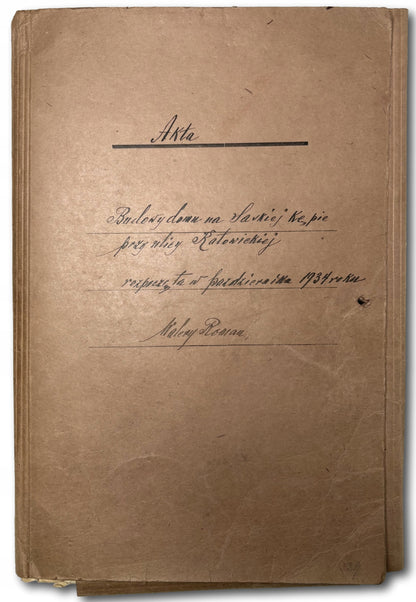 Akta
Budowy domu na Saskiej Kępie
przy ulicy Katowickiej
rozpoczęta w październiku 1934 roku
Walery Roman,